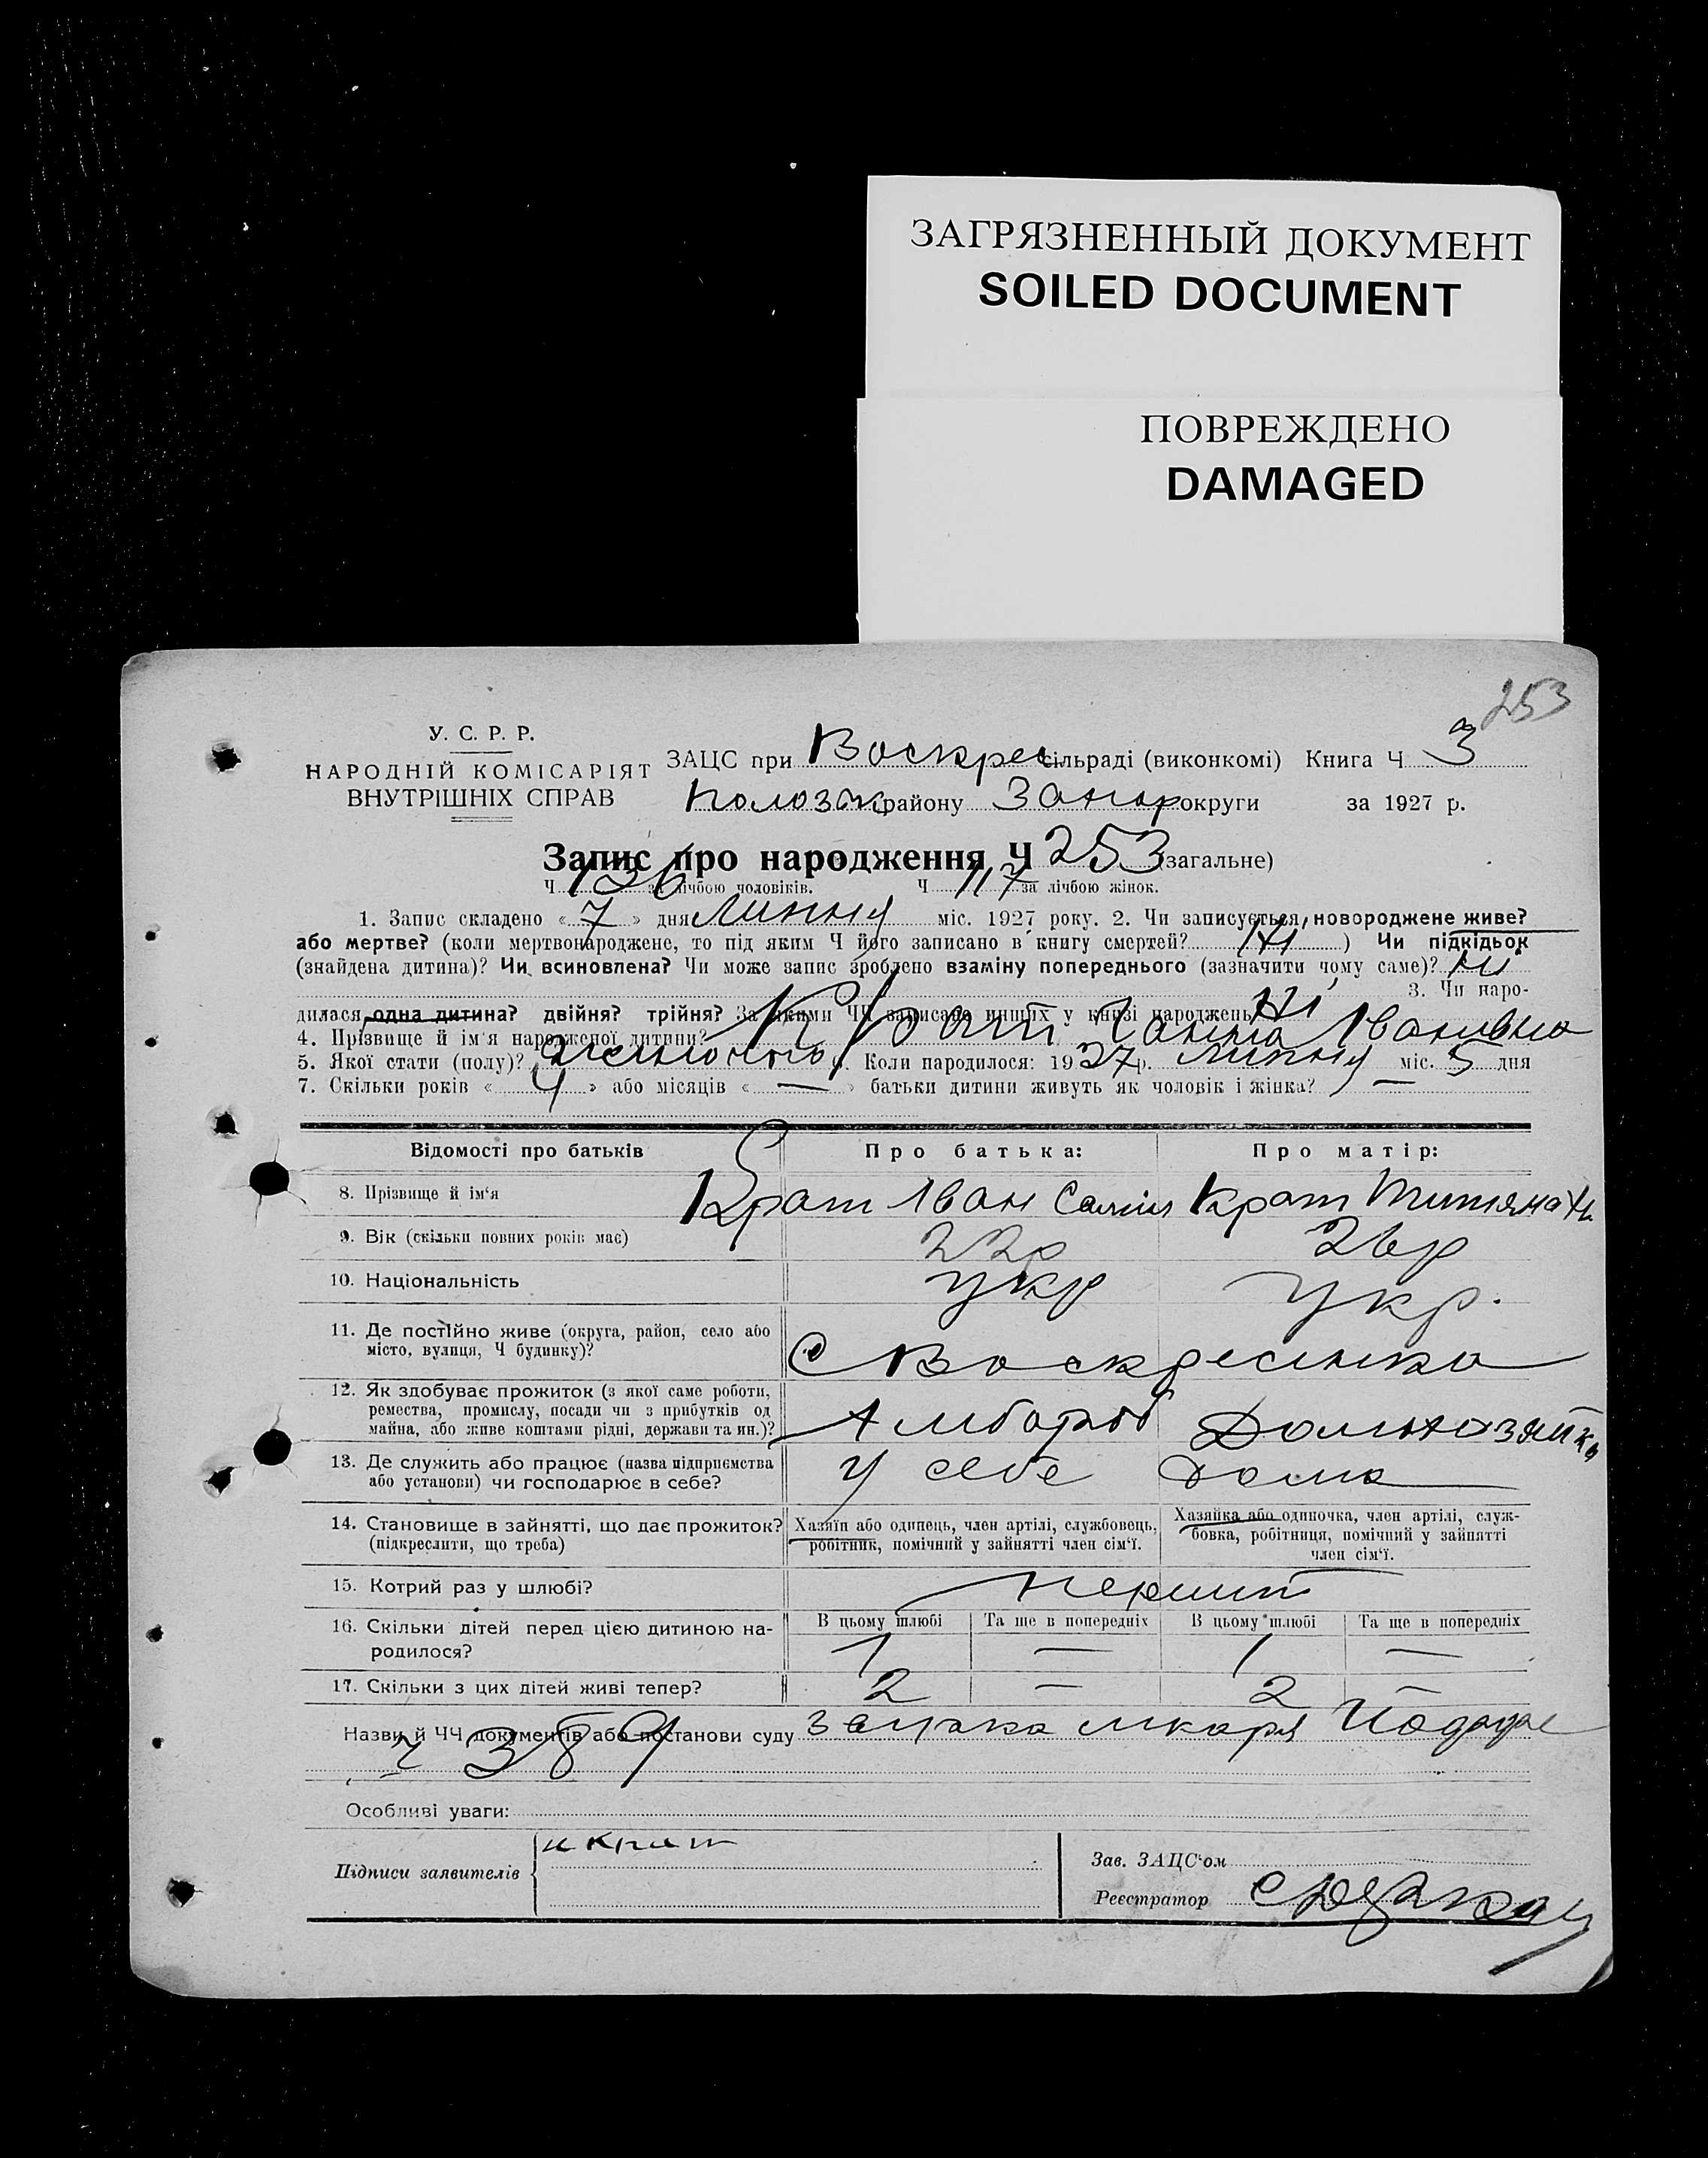 ЗАГРЯЗНЕННЫЙ ДОКУМЕНТ
SOILED DOCUMENT
ПОВРЕЖДЕНО
DAMAGED
253
У. С. Р. Р.
НАРОДНІЙ КОМІСАРІЯТ
ВНУТРІШНІХ СПРАВ
ЗАЦС при Воскрес сільраді (виконкомі) Книга Ч 3
району Запор округи за 1927 р.
Запис про народження Ч 253 (загальне)
Ч 136 за лічбою чоловіків. Ч 117 за лічбою жінок.
1. Запис складено «7» дня Липня міс. 1927 року. 2. Чи записується новороджене живе?
або мертве? (коли мертвонароджене, то під яким Ч його записано в книгу смертей? Ні) Чи підкідьок
(знайдена дитина)? Чи всиновлена? Чи може запис зроблено взаміну попереднього (зазначити чому саме)? Ні
3. Чи наро-
дилася одна дитина? двійня? трійня? За якими ЧЧ записано инших у книзі народжень Ні
4. Прізвище й ім'я народженої дитини? Крат Ганна Іванівна
5. Якої стати (полу)? Коли народилося: 1927 р. Липня міс. 5 дня
7. Скільки років «4» або місяців «—» батьки дитини живуть як чоловік і жінка? —
Відомості про батьків Про батька: Про матір:
8. Прізвище й ім'я Крат Іван Крат
9. Вік (скільки повних років має) 22р 26р
10. Національність укр укр.
11. Де постійно живе (округа, район, село або
місто, вулиця, Ч будинку)? С Воскресенка
12. Як здобуває прожиток (з якої саме роботи,
ремества, промислу, посади чи з прибутків од
майна, або живе коштами рідні, держави та ин.)? Домохозяйка
13. Де служить або працює (назва підприємства
або установи) чи господарює в себе? у себе дома
14. Становище в зайнятті, що дає прожиток?
(підкреслити, що треба)
Хазяїн або одинець, член артілі, службовець,
робітник, помічний у зайнятті член сім'ї.
Хазяйка або одиночка, член артілі, служ-
бовка, робітниця, помічний у зайнятті
член сім'ї.
15. Котрий раз у шлюбі?
16. Скільки дітей перед цією дитиною на-
родилося?
В цьому шлюбі Та ще в попередніх В цьому шлюбі Та ще в попередніх
1 — 1 —
17. Скільки з цих дітей живі тепер? 2 — 2 —
Назви й ЧЧ документів або постанови суду
389
Особливі уваги:
Підписи заявителів и Крат
Зав. ЗАЦС'ом
Реєстратор